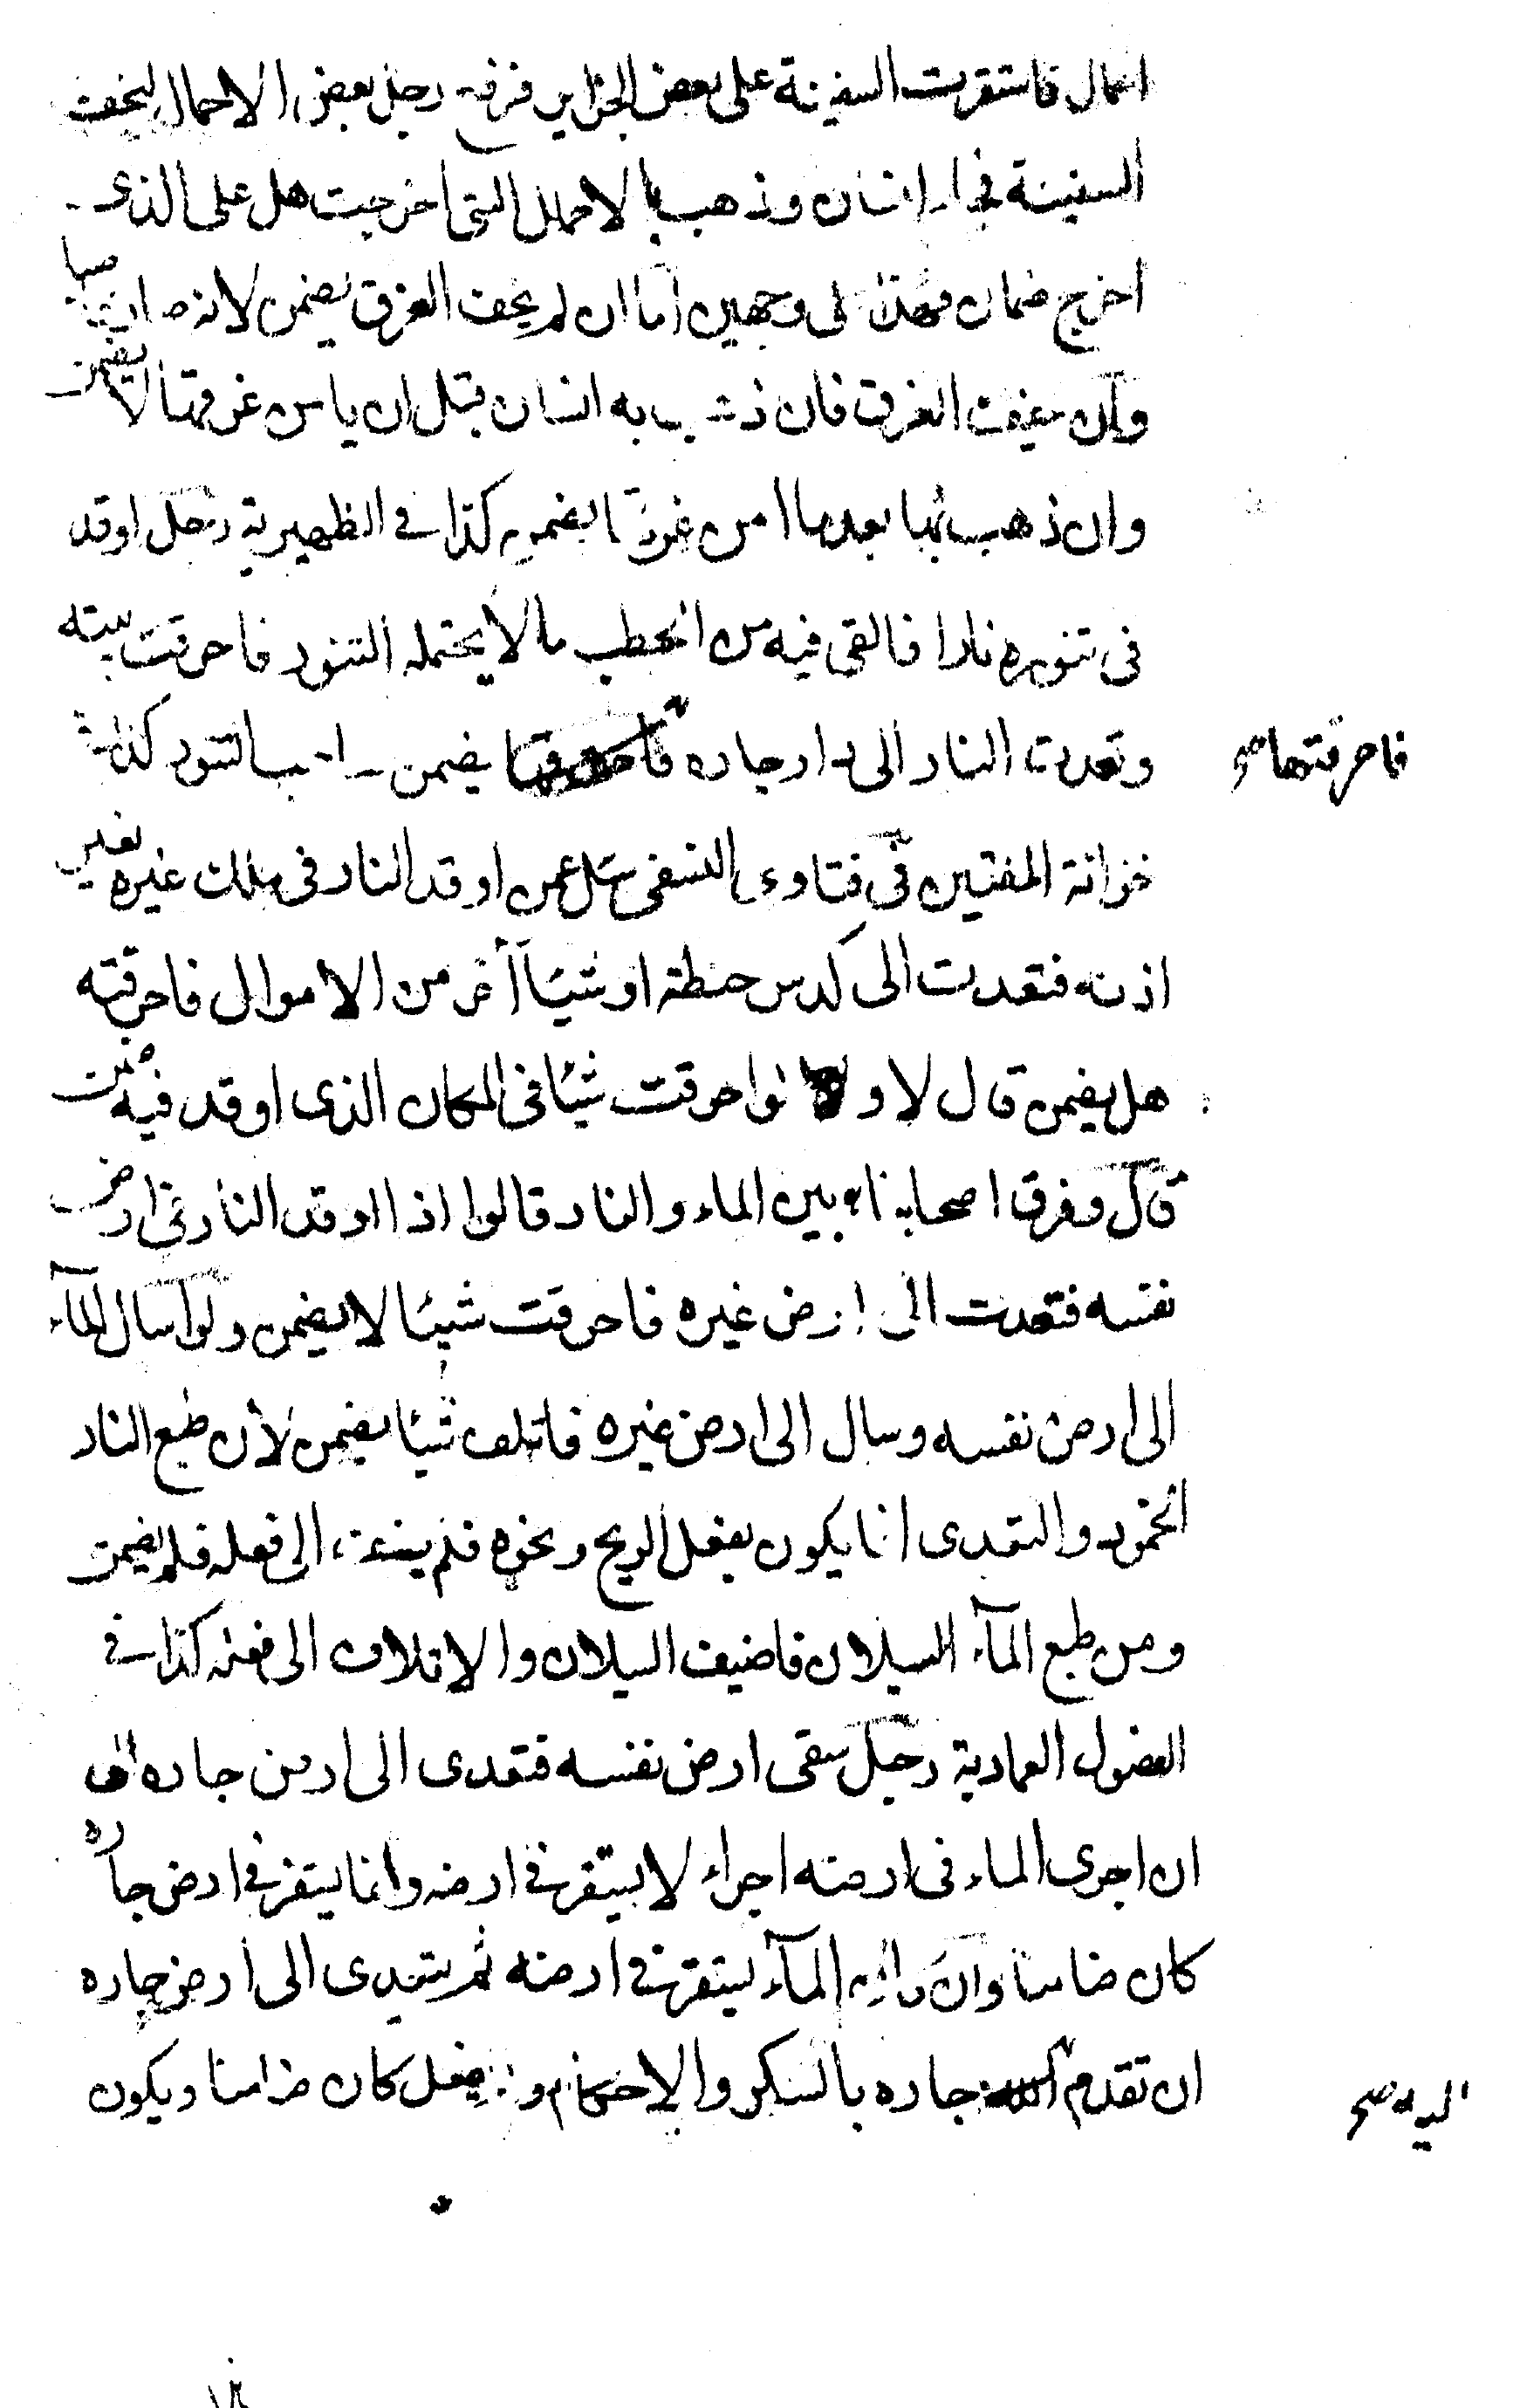 احمال فاستقرت السفينة على بعض الجزاير فرفع رجل بعض الاحمال ليخف
السفينة فجاء انسان وذهب بالاحمال التى اخرجت هل على الذى
اخرج ضمان فهذا على وجهين اما ان لم يخف الغرق يضمن لانه صار غاصبا
وان خيف الغرق فان ذهب به انسان قبل ان يامن غرقها لا يضمن
وان ذهب بها بعدما امن غرقها يضمن كذا فى الظهيرية رجل اوقد
فى تنوره نارا فالقى فيه من الحطب ما لا يحتمله التنور فاحرقت بيته
وتعدت النار الى دار جاره يضمن صاحب التنور كذا فى
فاحرقتها صح
خزانة المفتين فى فتاوى النسفى سئل عمن اوقد النار فى ملك غيره بغير
اذنه فتعدت الى كدس حنطة او شيئا آخر من الاموال فاحرقته
هل يضمن قال لا ولو احرقت شيئا فى المكان الذى اوقد فيه ضمن
قال وفرق اصحابنا بين الماء والنار قالوا اذا اوقد النار فى ارض
نفسه فتعدت الى ارض غيره فاحرقت شيئا لا يضمن ولو اسال المآء
الى ارض نفسه وسال الى ارض غيره فاتلف شيئا يضمن لأن طبع النار
الخمود والتعدى انما يكون بفعل الريح ونحوه فلم يضف الى فعله فلم يضمن
ومن طبع المآء السيلان فاضيف السيلان والاتلاف الى فعله كذا فى
الفصول العمادية رجل سقى ارض نفسه فتعدى الى ارض جاره
ان اجرى الماء فى ارضه اجراء لا يستقر فى ارضه وانما يستقر فى ارض جاره
كان ضامنا وان كان المآء يستقر فى ارضه ثم يتعدى الى ارض جاره
ان تقدم جاره بالسكر والاحكام ولم يفعل كان ضامنا ويكون
اليه صح